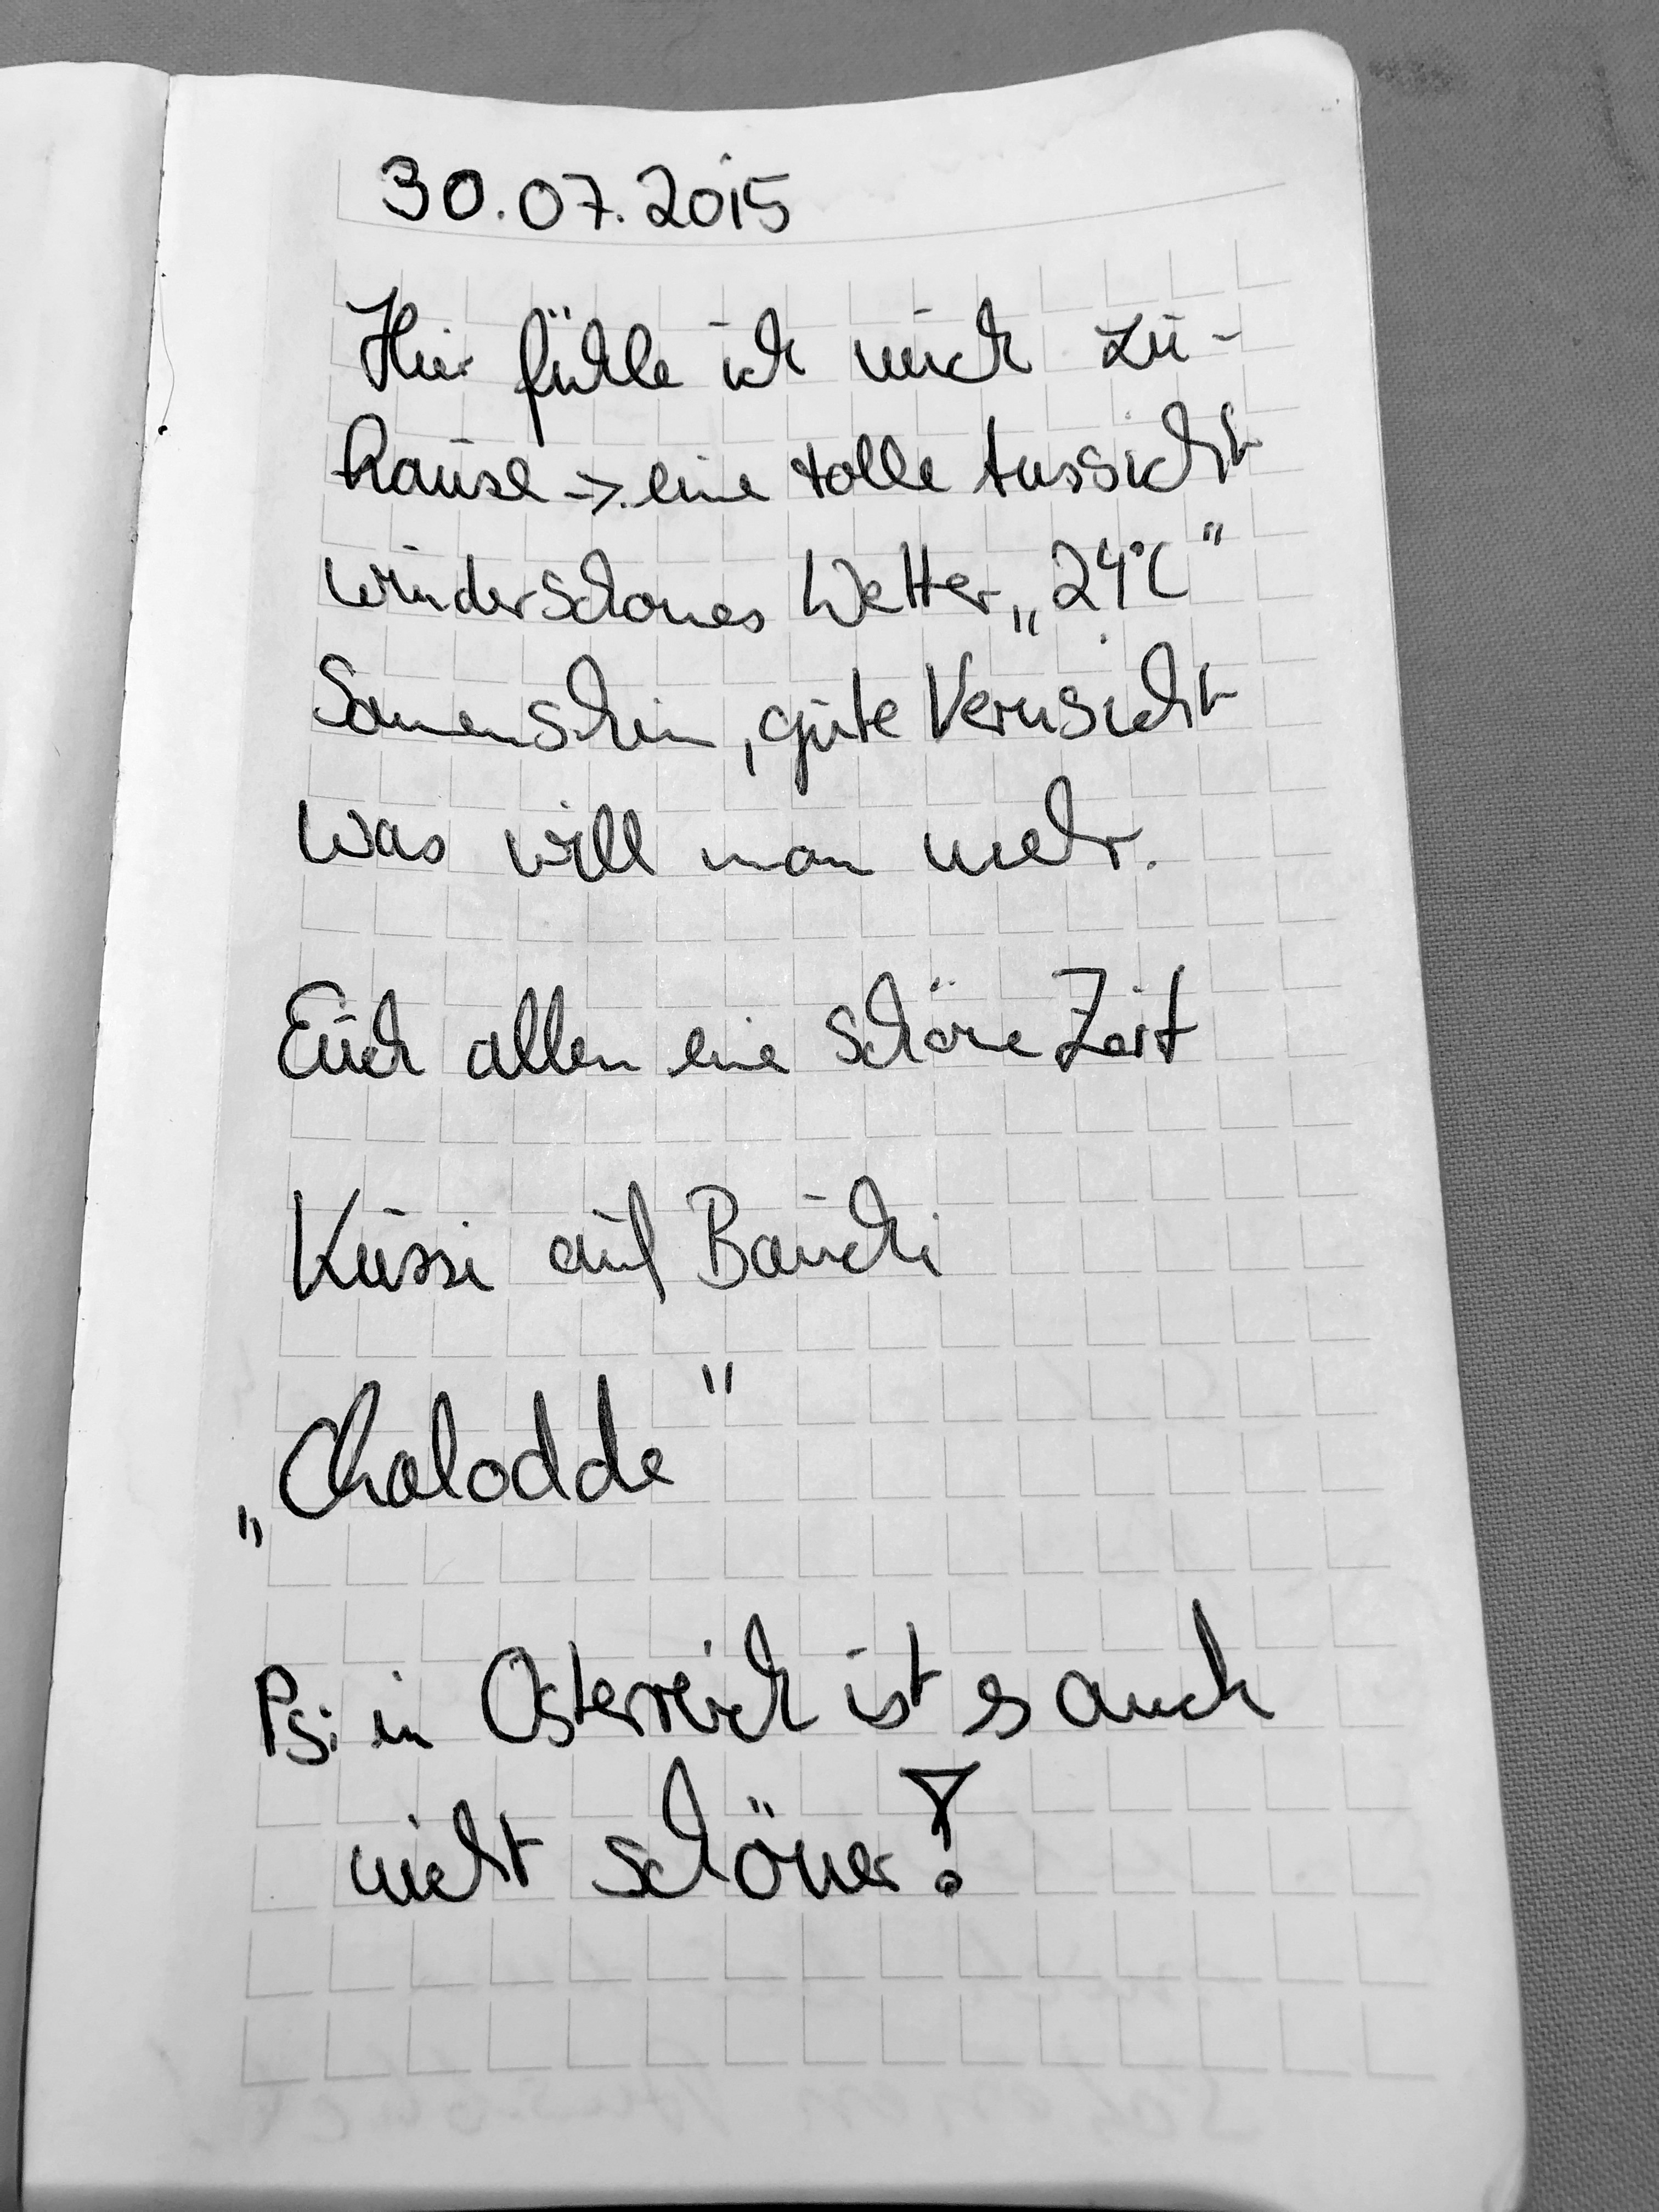 30.07.2015
Hier fühle ich mich zu-
hause -> eine tolle Aussicht
wunderschönes Wetter „24°C"
Sonnenschein, gute Vernsicht
Was will man mehr.
Euch allen eine schöne Zeit
Küssi auf Bauchi
„Chalodde"
Ps: in Österreich ist es auch
nicht schöner!